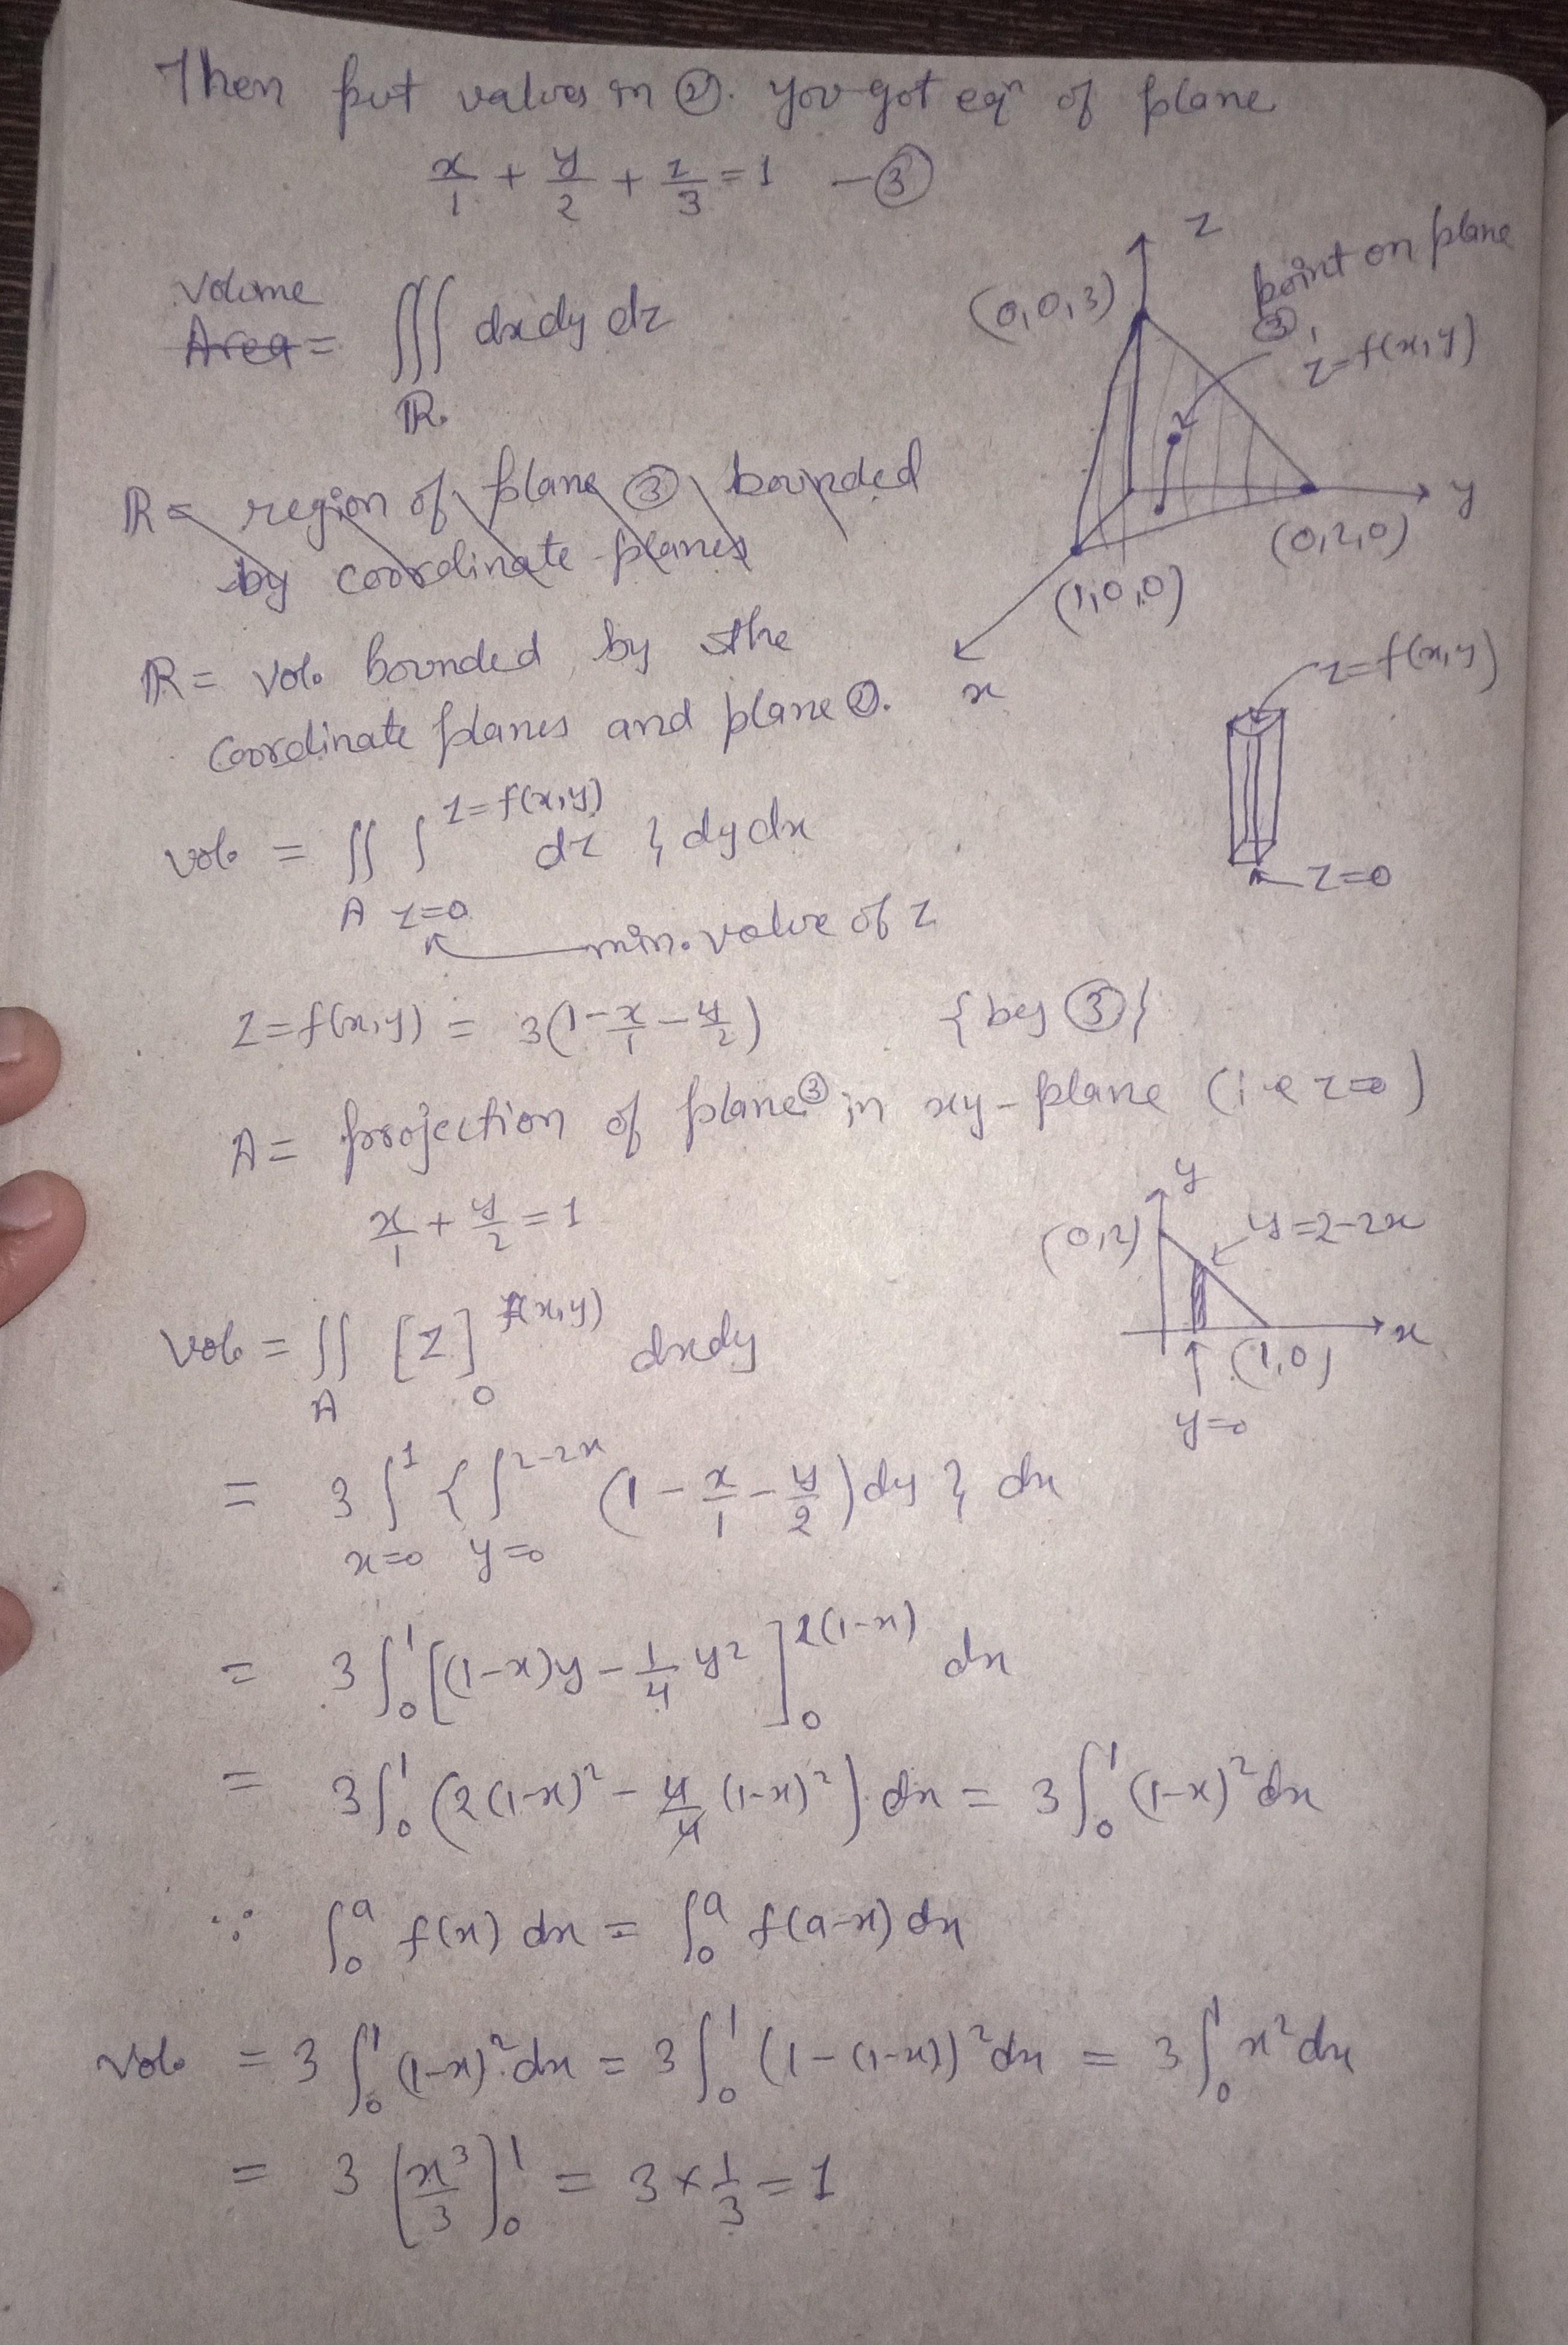 Then put values in ②. you got eqⁿ of plane
x/1 + y/2 + z/3 = 1 —③
Volume
Area = ∭ dxdy dz
R.
R = region of plane ③ bounded
by coordinate planes
R = vol. bounded by the
coordinate planes and plane ②.
z
(0,0,3)
point on plane
③,
z=f(x,y)
y
(0,2,0)
(1,0,0)
x
z=f(x,y)
z=0
vol. = ∬ ∫ z=f(x,y) dz } dydx
A z=0
min. value of z
z=f(x,y) = 3(1-x/1-y/2) {by ③}
A = projection of plane③ in xy-plane (i.e z=0)
x/1 + y/2 = 1
y
(0,2)
y=2-2x
x
(1,0)
y=0
Vol. = ∬ [z]₀ f(x,y) dxdy
A
= 3 ∫¹ { ∫²⁻²ˣ (1 - x/1 - y/2) dy } dx
x=0 y=0
= 3∫₀¹ [(1-x)y - 1/4 y²]₀ 2(1-x) dx
= 3∫₀¹ (2(1-x)² - 4/4 (1-x)²) dx = 3∫₀¹ (1-x)² dx
∵ ∫₀ᵃ f(x) dx = ∫₀ᵃ f(a-x) dx
Vol. = 3∫₀¹ (1-x)² dx = 3∫₀¹ (1-(1-x))² dx = 3∫₀¹ x² dx
= 3 (x³/3)₀¹ = 3 × 1/3 = 1